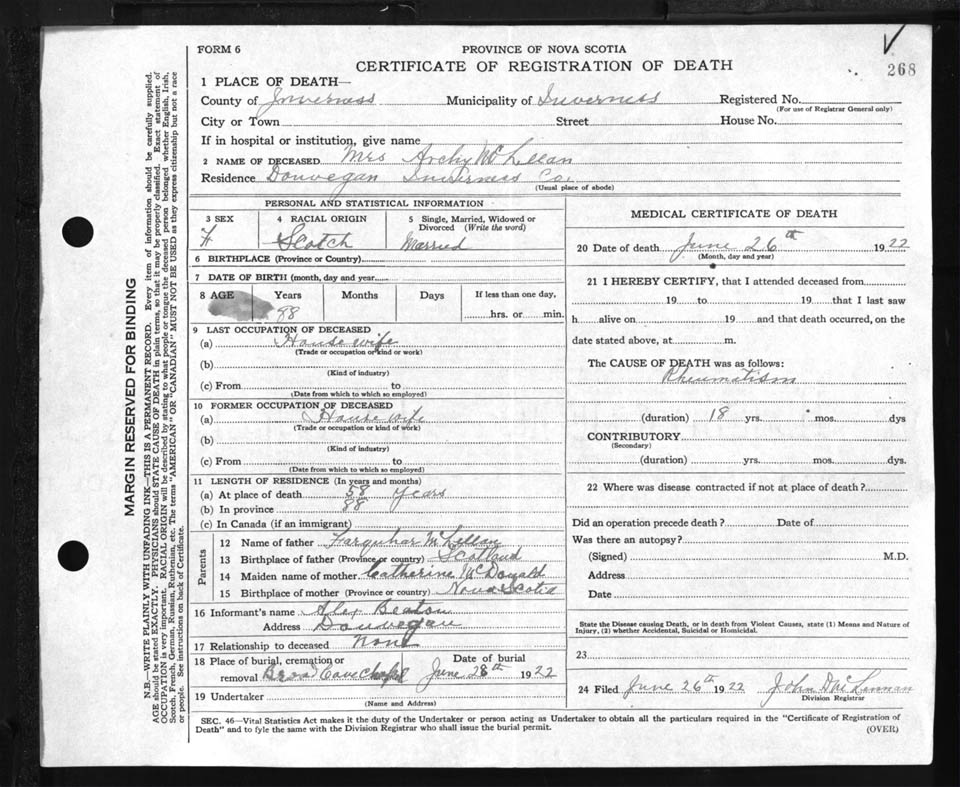 268
FORM 6
PROVINCE OF NOVA SCOTIA
CERTIFICATE OF REGISTRATION OF DEATH
1 PLACE OF DEATH—
County of Inverness Municipality of Inverness Registered No.
(For use of Registrar General only)
City or Town Street House No.
If in hospital or institution, give name
2 NAME OF DECEASED Mrs Archy McLellan
Residence Dounvegan Inverness Co.
(Usual place of abode)
MARGIN RESERVED FOR BINDING
N.B.—WRITE PLAINLY WITH UNFADING INK—THIS IS A PERMANENT RECORD. Every item of information should be carefully supplied.
AGE should be stated EXACTLY. PHYSICIANS should STATE CAUSE OF DEATH in plain terms, so that it may be properly classified. Exact statement of
OCCUPATION is very important. RACIAL ORIGIN will be described by stating to what people or tongue the deceased person belonged whether English, Irish,
Scotch, French, German, Russian, Ruthenian, etc. The terms "AMERICAN" OR "CANADIAN" MUST NOT BE USED as they express citizenship but not a race
or people. See instructions on back of Certificate.
PERSONAL AND STATISTICAL INFORMATION
3 SEX
F
4 RACIAL ORIGIN
Scotch
5 Single, Married, Widowed or
Divorced (Write the word)
Married
6 BIRTHPLACE (Province or Country)
7 DATE OF BIRTH (month, day and year
8 AGE Years Months Days If less than one day,
88 hrs. or min.
9 LAST OCCUPATION OF DECEASED
(a) House wife
(Trade or occupation or kind or work)
(b)
(Kind of industry)
(c) From to
(Date from which to which so employed)
10 FORMER OCCUPATION OF DECEASED
(a) House wife
(Trade or occupation or kind of work)
(b)
(Kind of industry)
(c) From to
(Date from which to which so employed)
11 LENGTH OF RESIDENCE (In years and months)
(a) At place of death 58 Years
(b) In province 88
(c) In Canada (if an immigrant)
Parents
12 Name of father Farquhar McLellan
13 Birthplace of father (Province or country) Scotland
14 Maiden name of mother Catherine McDonald
15 Birthplace of mother (Province or country) Nova Scotia
16 Informant's name Alex Beaton
Address Dounvegan
17 Relationship to deceased None
18 Place of burial, cremation or Date of burial
removal Broad Cove Chapel June 28th 1922
19 Undertaker
(Name and Address)
MEDICAL CERTIFICATE OF DEATH
20 Date of death June 26th 1922
(Month, day and year)
21 I HEREBY CERTIFY, that I attended deceased from
19 to 19 that I last saw
h alive on 19 and that death occurred, on the
date stated above, at m.
The CAUSE OF DEATH was as follows:
Rheumatism
(duration) 18 yrs. mos. dys
CONTRIBUTORY
(Secondary)
(duration) yrs. mos. dys.
22 Where was disease contracted if not at place of death?
Did an operation precede death? Date of
Was there an autopsy?
(Signed) M.D.
Address
Date
State the Disease causing Death, or in death from Violent Causes, state (1) Means and Nature of
Injury, (2) whether Accidental, Suicidal or Homicidal.
23
24 Filed June 26th 1922 John D McLennan
Division Registrar
SEC. 46—Vital Statistics Act makes it the duty of the Undertaker or person acting as Undertaker to obtain all the particulars required in the "Certificate of Registration of
Death" and to fyle the same with the Division Registrar who shall issue the burial permit.
(OVER)